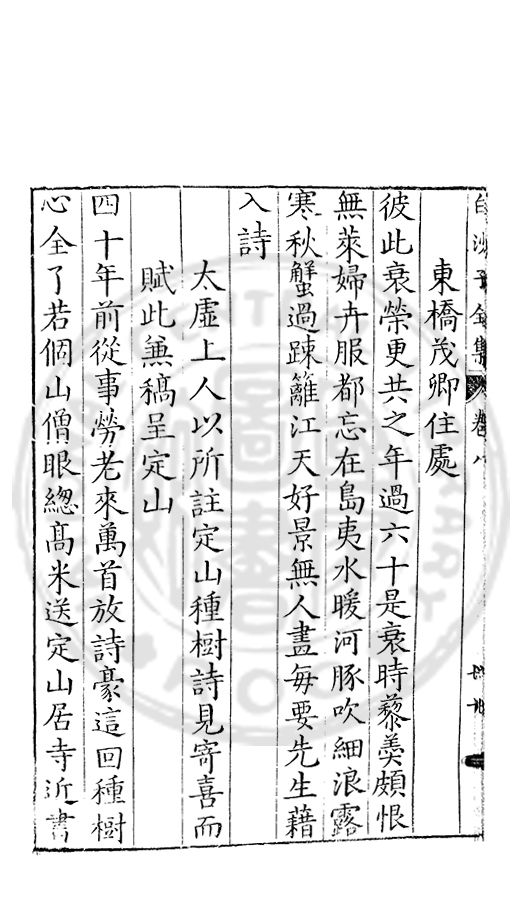 白沙子全集 卷八
東橋茂卿住處
彼此衰榮更共之年過六十是衰時藜羹頗恨
無萊婦卉服都忘在島夷水暖河豚吹細浪露
寒秋蟹過踈籬江天好景無人畫每要先生藉
入詩
太虛上人以所註定山種樹詩見寄喜而
賦此兼稿呈定山
四十年前從事勞老來萬首放詩豪這回種樹
心全了若個山僧眼緫髙米送定山居寺近書